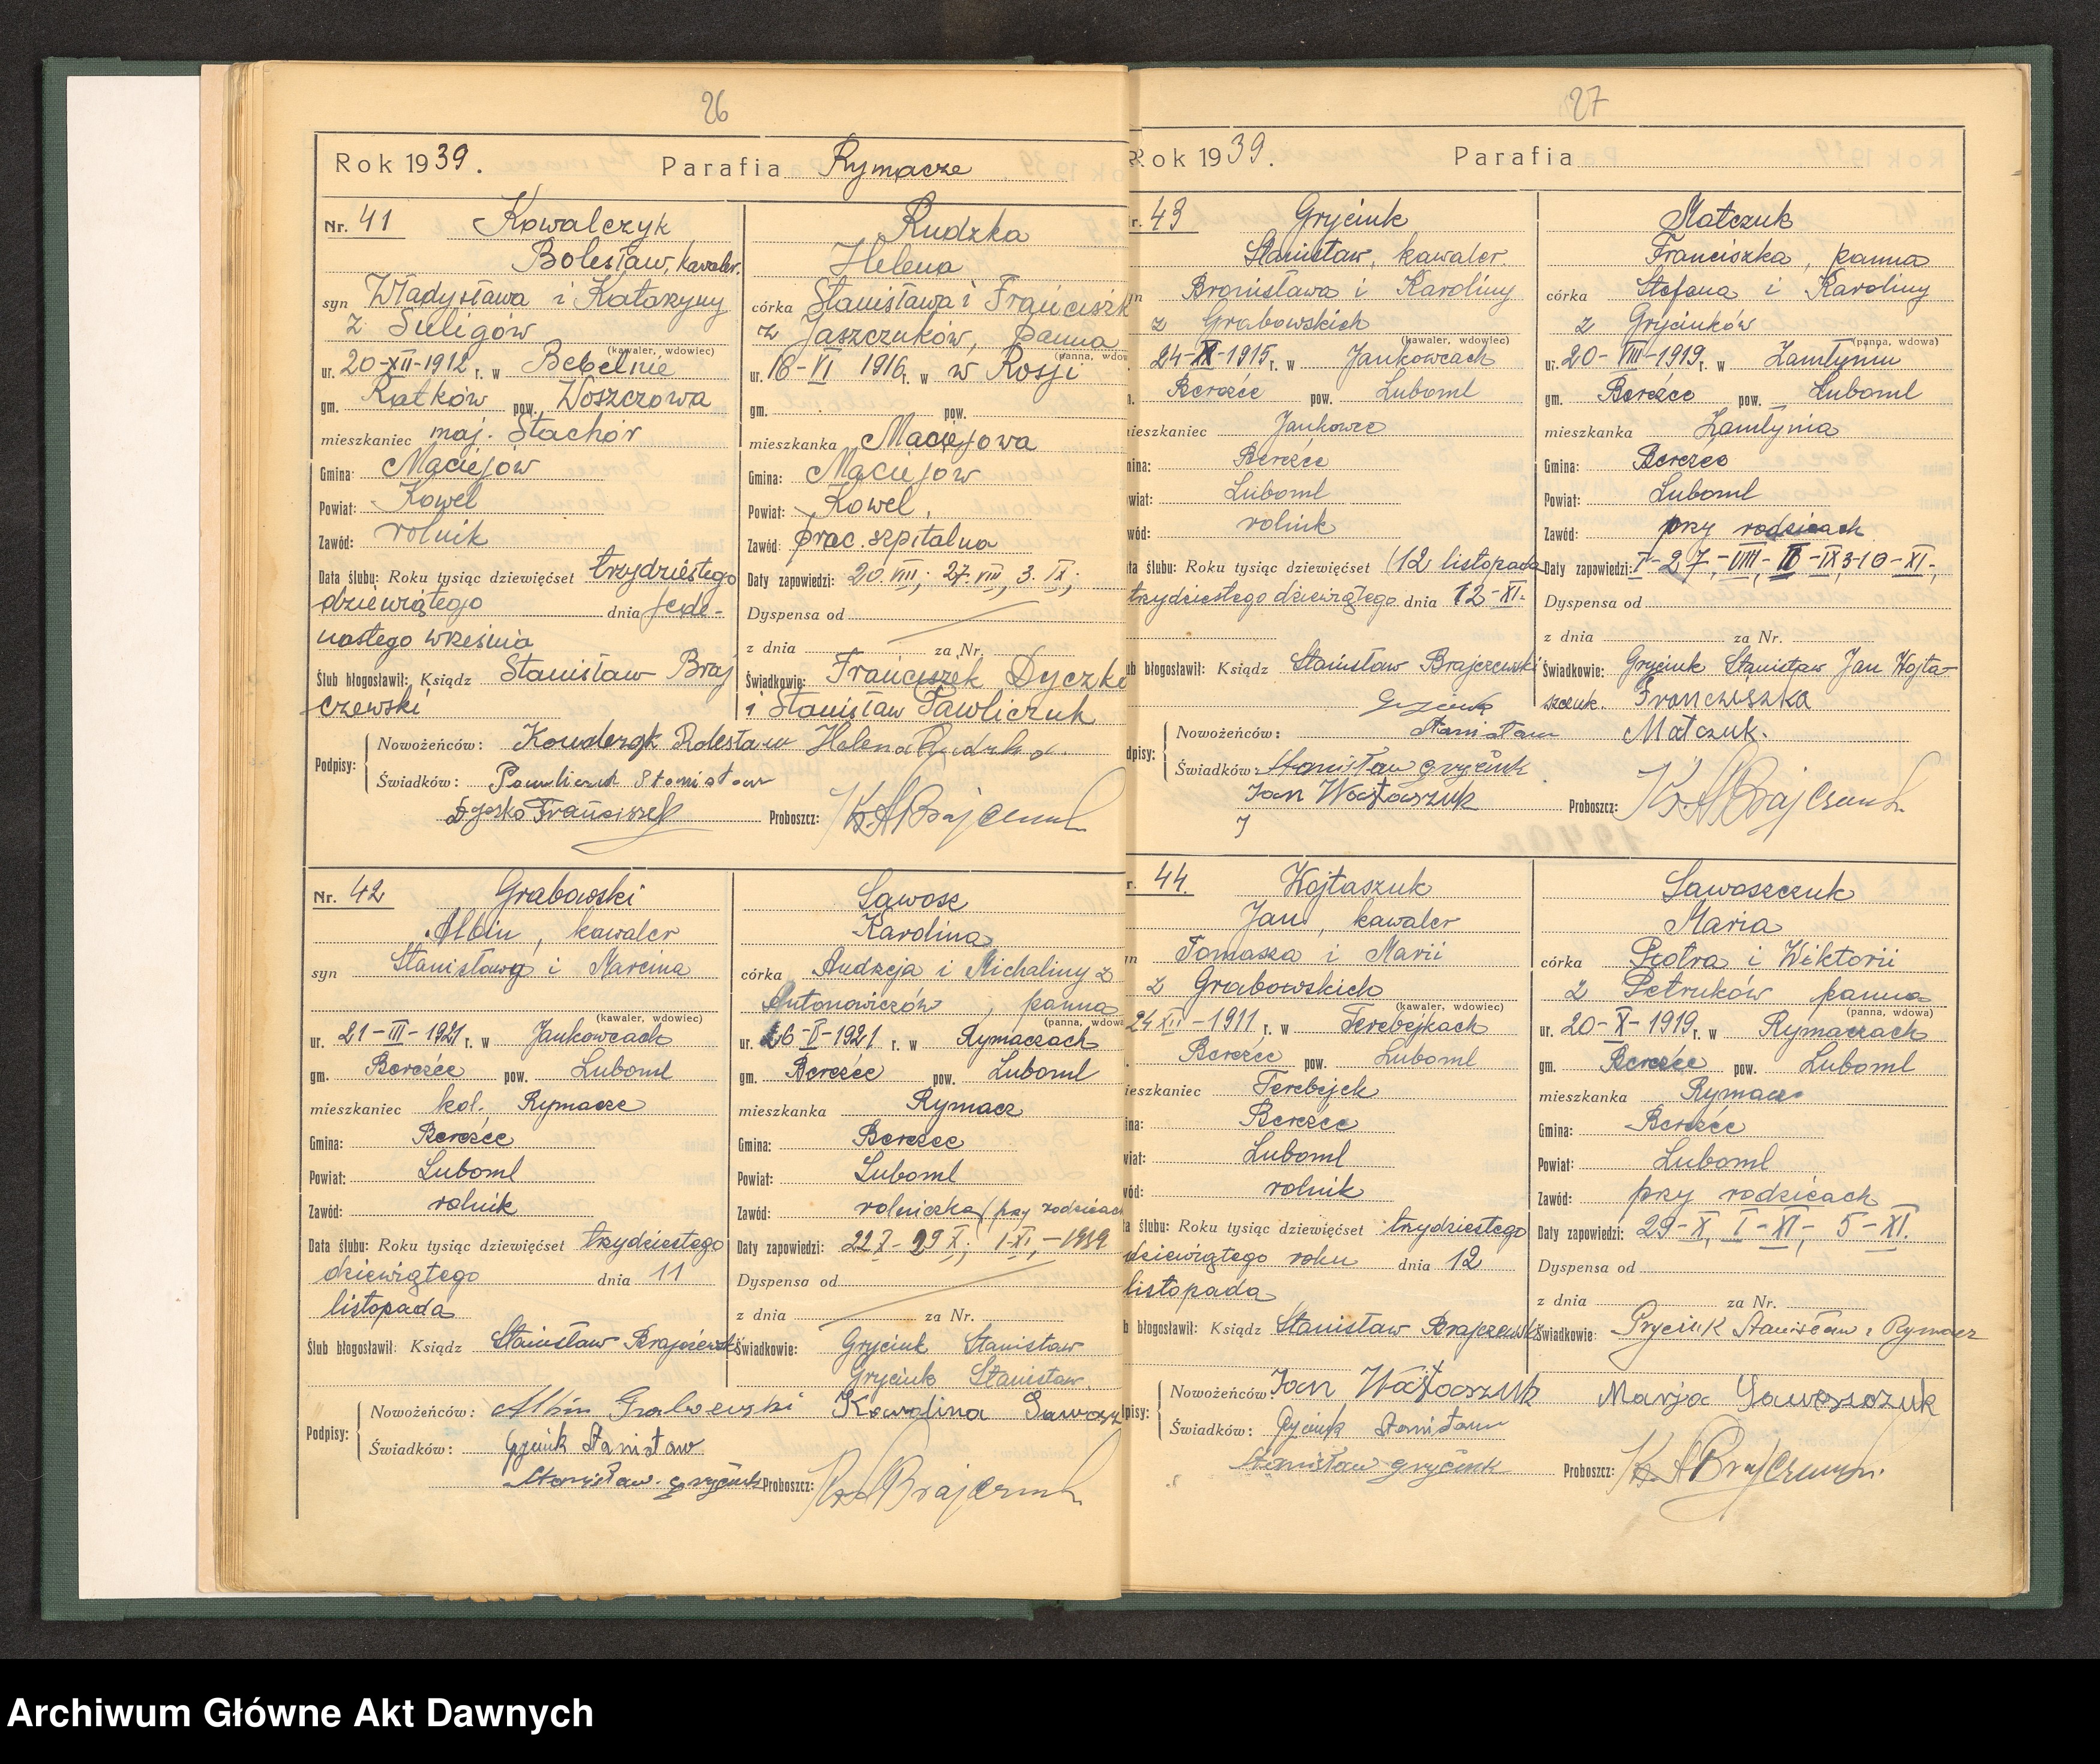 26
Rok 1939. Parafia Rymacze
Nr. 41 Kowalczyk
Bolesław, kawaler.
syn Władysława i Katarzyny
z Suligów
(kawaler, wdowiec)
ur. 20-XII-1912 r. w Bebelnie
gm. Ratków pow. Włoszczowa
mieszkaniec maj. Stachór
Gmina: Maciejów
Powiat: Kowel
Zawód: rolnik
Data ślubu: Roku tysiąc dziewięćset trzydziestego
dziewiątego dnia jede-
nastego września
Ślub błogosławił: Ksiądz Stanisław Braj
czewski
Rudzka
Helena
córka Stanisława i Franciszk
z Jaszczuków, panna
(panna, wdow
ur. 16-VI 1916 r. w w Rosji
gm. pow.
mieszkanka Maciejowa
Gmina: Maciejów
Powiat: Kowel,
Zawód: prac. szpitalna
Daty zapowiedzi: 20. VIII; 27. VIII, 3. IX;
Dyspensa od
z dnia za Nr.
Świadkowie: Franciszek Dyczko
i Stanisław Pawliczuk
Podpisy: Nowożeńców: Kowalczyk Bolesław Helena Rudzka.
Świadków: Pawliczuk Stanisław
Dyczko Franciszek Proboszcz: Ks. St Brajczewski
Nr. 42 Grabowski
Albin, kawaler
syn Stanisława i Marcina
(kawaler, wdowiec)
ur. 21-III-1921 r. w Jankowcach
gm. Bereźće pow. Luboml
mieszkaniec kol. Rymacze
Gmina: Bereźće
Powiat: Luboml
Zawód: rolnik
Data ślubu: Roku tysiąc dziewięćset trzydziestego
dziewiątego dnia 11
listopada
Ślub błogosławił: Ksiądz Stanisław Brajczewski
Sawosz
Karolina
córka Andrzeja i Michaliny z
Antonowiczów, panna
(panna, wdowa
ur. 26-V-1921 r. w Rymaczach
gm. Bereźće pow. Luboml
mieszkanka Rymacz
Gmina: Bereźce
Powiat: Luboml
Zawód: rolniczka (przy rodzicach
Daty zapowiedzi: 22 X - 29 X; I-XI, -1939
Dyspensa od
z dnia za Nr.
Świadkowie: Gryciuk Stanisław
Gryciuk Stanisław.
Podpisy: Nowożeńców: Albin Grabowski Karolina Sawosz
Świadków: Gryciuk Stanisław
Stanisław Gryciuk Proboszcz: Ks. St Brajczewski
27
Rok 1939. Parafia
r. 43 Gryciuk
Stanisław, kawaler.
yn Bronisława i Karoliny
z Grabowskich
(kawaler, wdowiec)
24-XI-1915 r. w Jankowcach
Bereźće pow. Luboml
ieszkaniec Jankowce
mina: Bereźće
wiat: Luboml
wód: rolnik
ta ślubu: Roku tysiąc dziewięćset (12 listopada
trzydziestego dziewiątego dnia 12-XI.
ub błogosławił: Ksiądz Stanisław Brajczewski
Matczuk
Franciszka, panna
córka Stefana i Karoliny
z Gryciuków
(panna, wdowa)
ur. 20-VIII-1919 r. w Zamłyniu
gm. Bereźce pow. Luboml
mieszkanka Zamłynia
Gmina: Bereźce
Powiat: Luboml
Zawód: przy rodzicach
Daty zapowiedzi:
Dyspensa od
z dnia za Nr.
Świadkowie: Gryciuk Stanisław Jan Wojta-
szczuk.
dpisy: Nowożeńców: Gryciuk Stanisław Franciszka Matczuk.
Świadków: Stanisław Gryciuk
Jan Wojtaszuk Proboszcz: Ks. St Brajczewski
r. 44. Wojtaszuk
Jan, kawaler
yn Tomasza i Marii
z Grabowskich
(kawaler, wdowiec)
24 XII-1911, r. w Terebejkach
Bereźće pow. Luboml
ieszkaniec Terebejek
ina: Bereźće
wiat: Luboml
wód: rolnik
ta ślubu: Roku tysiąc dziewięćset trzydziestego
dziewiątego roku dnia 12
listopada
b błogosławił: Ksiądz Stanisław Brajczewski
Sawoszczuk
Maria
córka Piotra i Wiktorii
z Petruków panna
(panna, wdowa)
ur. 20-X-1919 r. w Rymaczach
gm. Bereźće pow. Luboml
mieszkanka Rymacz
Gmina: Bereźće
Powiat: Luboml
Zawód: przy rodzicach
Daty zapowiedzi: 29-X, I-XI, 5-XI.
Dyspensa od
z dnia za Nr.
Świadkowie: Gryciuk Stanisław z Rymacz
pisy: Nowożeńców: Jan Wojtaszuk Marja Sawoszczuk
Świadków: Gryciuk Stanisław
Stanisław Gryciuk Proboszcz: Ks. St Brajczewski.
Archiwum Główne Akt Dawnych